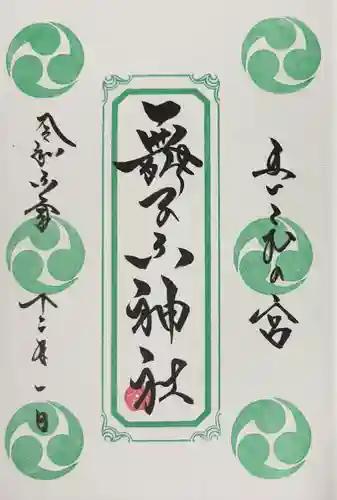 の宮
舞子六神社
令和六年
十二月一日